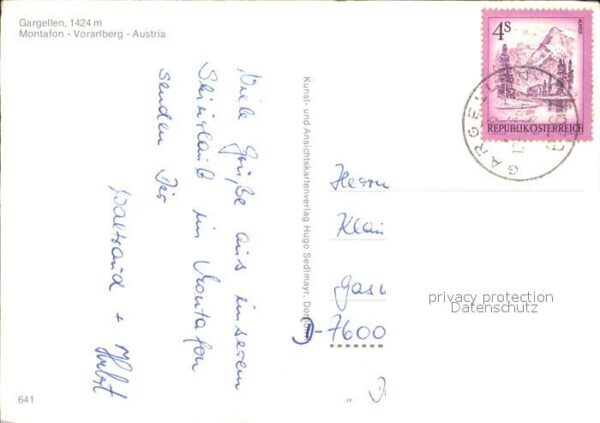 Gargellen, 1424 m
Montafon - Vorarlberg - Austria
Viele Grüße aus unserem
Skiurlaub im Montafon
senden Dir
Waltraud +
Kunst- und Ansichtskartenverlag Hugo Sedlmayr,
4S
REPUBLIK ÖSTERREICH
GARGELL
Herrn
Klau
Gasw
privacy protection
Datenschutz
D-7600
641